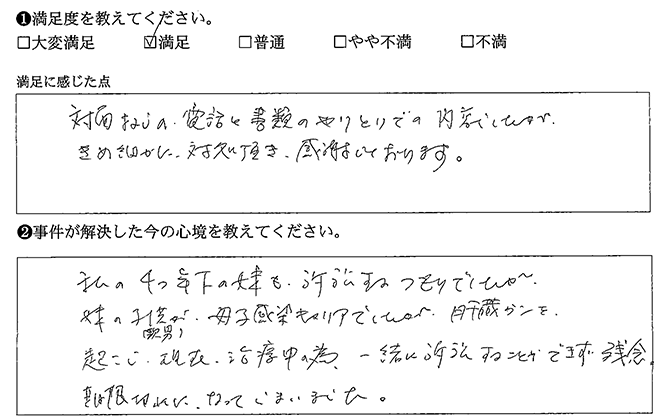 ❶満足度を教えてください。
□大変満足 ☑満足 □普通 □やや不満 □不満
満足に感じた点
対面なしの、電話と書類のやりとりでの内容でしたが、
きめ細かに、対処頂き、感謝しております。
❷事件が解決した今の心境を教えてください。
私の4つ年下の妹も、訴訟するつもりでしたが、
妹の子供が、母子感染キャリアでしたが、肝臓ガンを、
(長男)
起こし、現在、治療中の為、一緒に訴訟することができず残念。
期限切れに、なってしまいました。